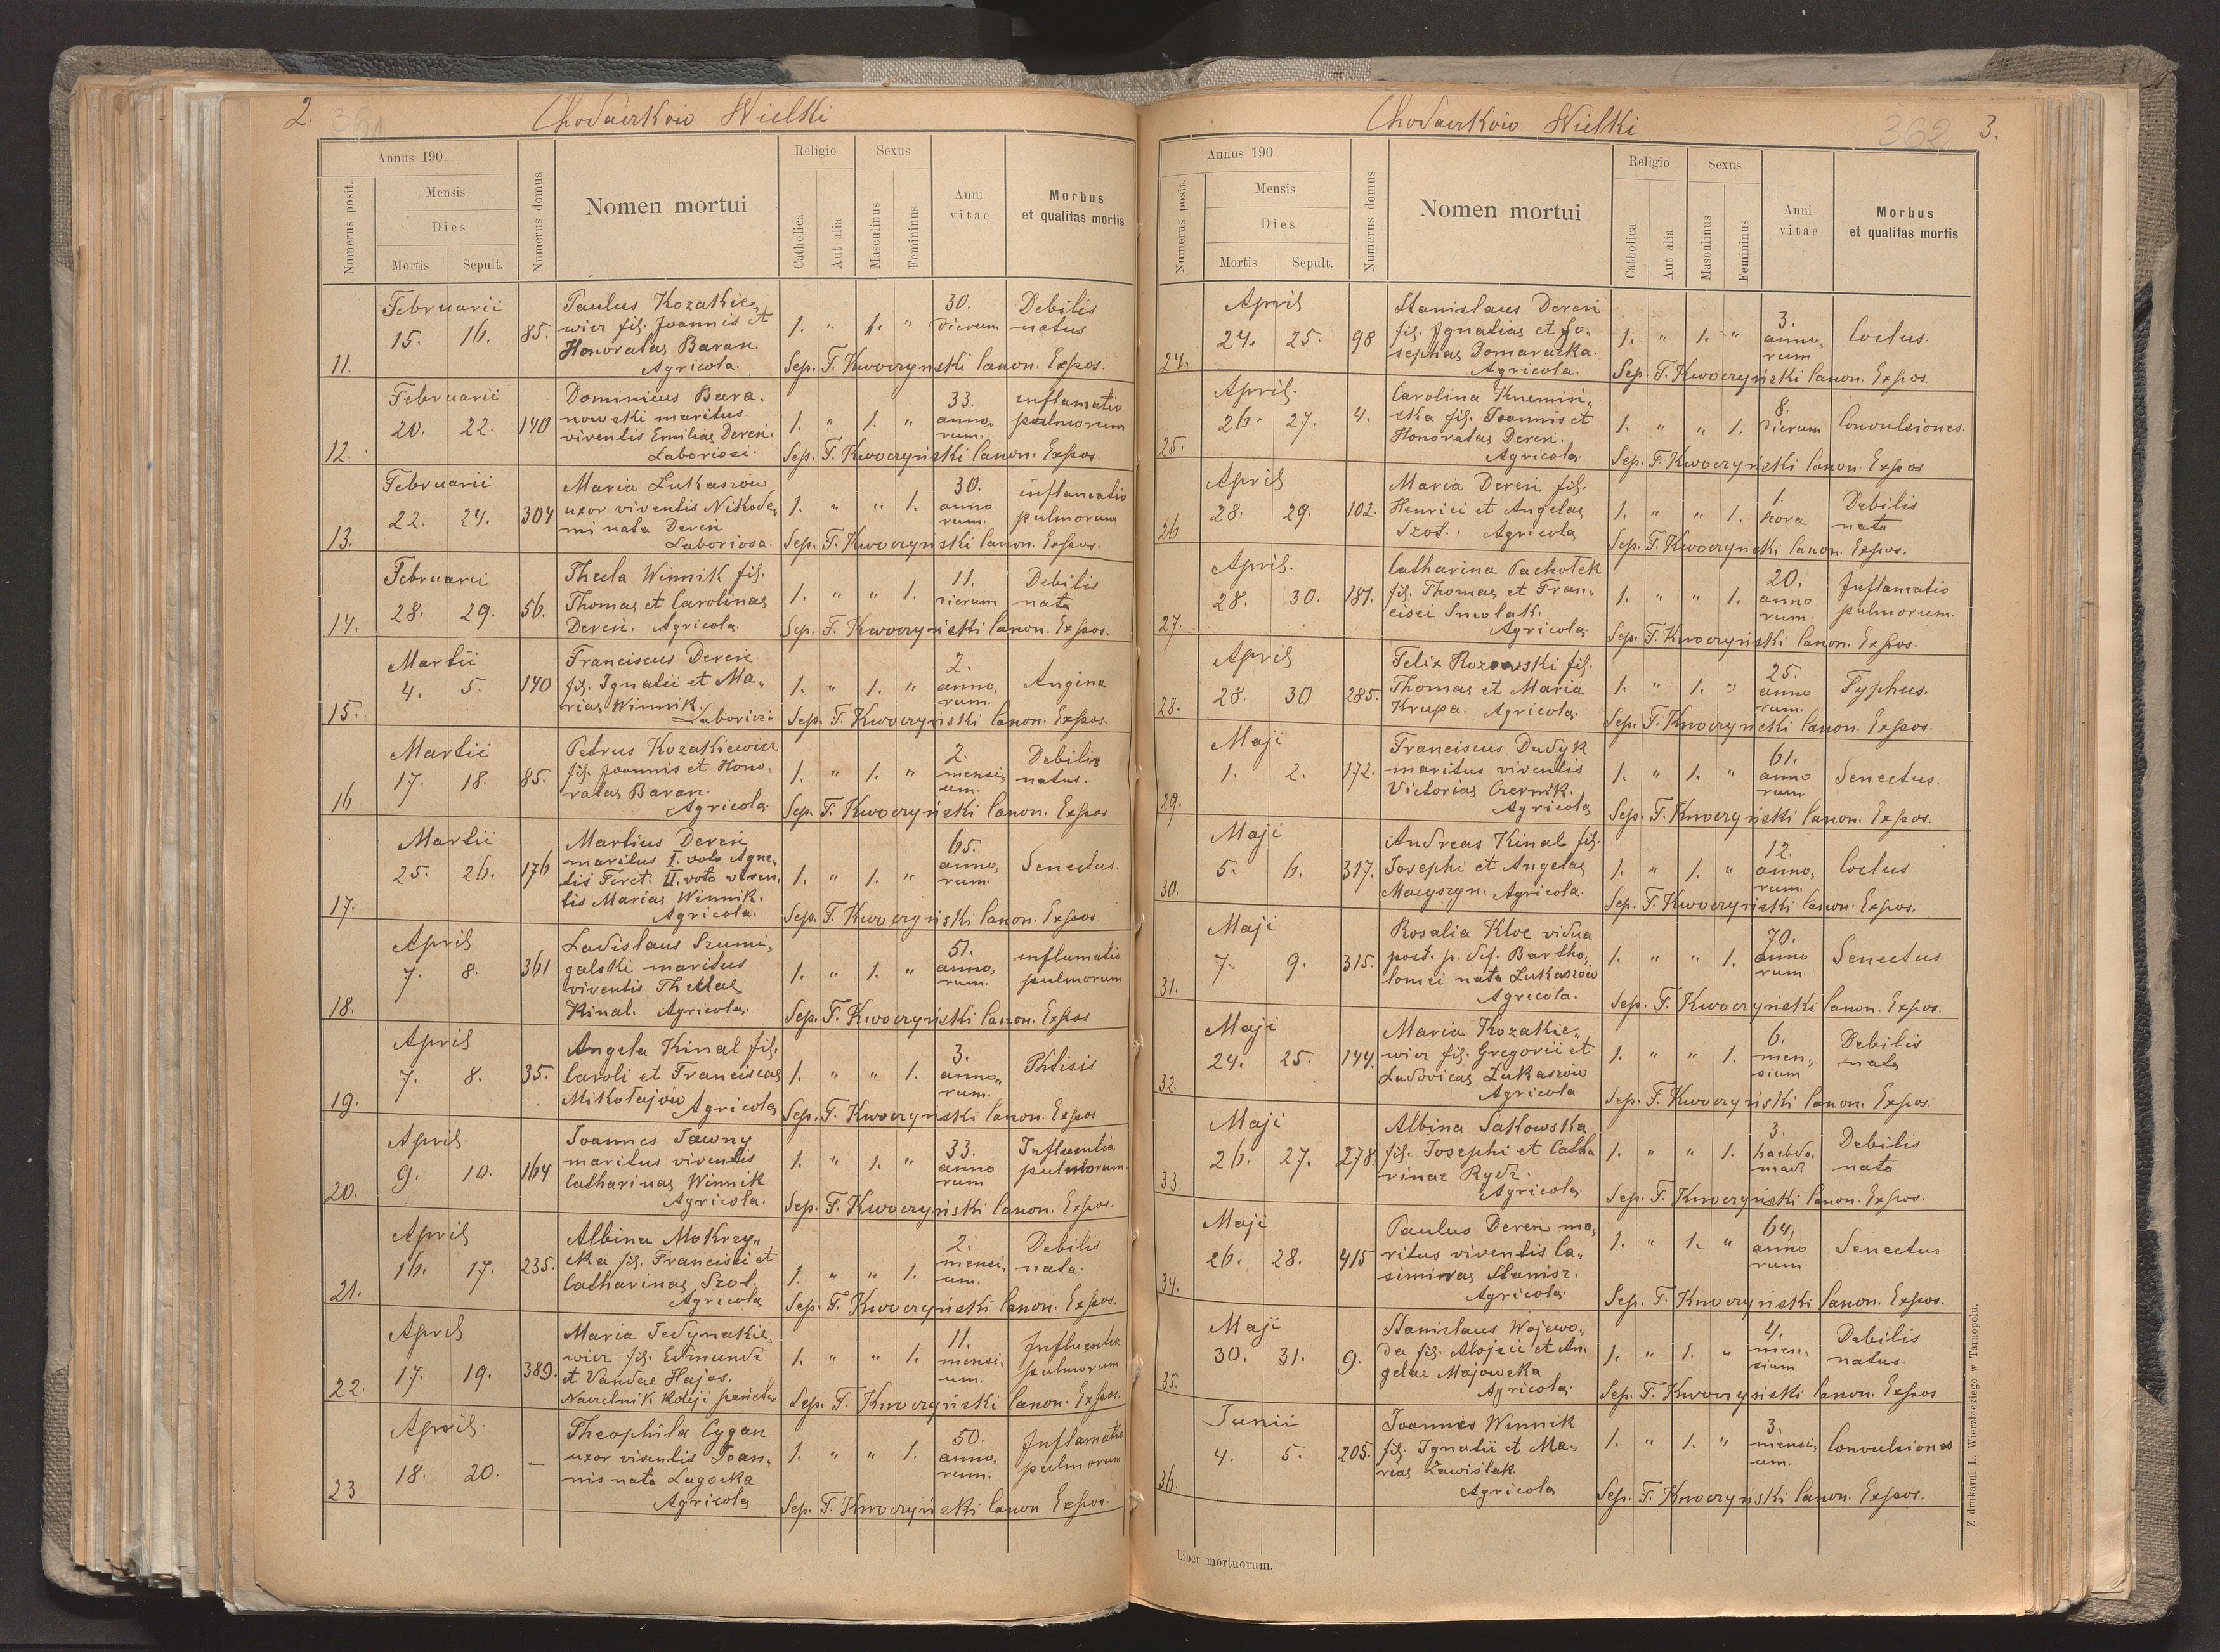 2. 361
Chodaczków Wielki
Annus 190
Numerus posit.
Mensis
Dies
Mortis Sepult.
Numerus domus
Nomen mortui
Religio
Catholica
Aut alia
Sexus
Masculinus
Femininus
Anni vitae
Morbus
et qualitas mortis
11. Februarii 15. 16. 85. Paulus Kozakie„ 30. Debilis
wicz fil. Joannis et 1. " 1. " dierum natus
Honoratae Baran.
Agricola. Sep. F. Kwoczyński Canon. Expos.
12. Februarii 20. 22. 140 Dominicus Bara„ 33. inflamatio
nowski maritus 1. " 1. " anno„ pulmorum
viventis Emiliae Dereń. rum.
Laboriosi. Sep. F. Kwoczyński Canon. Expos.
13. Februarii 22. 24. 304 Maria Łukaszow 30. inflamatio
uxor viventis Nikode„ 1. " " 1. anno pulmorum
mi nata Dereń rum.
Laboriosa. Sep. F. Kwoczyński Canon. Expos.
14. Februarii 28. 29. 56. Thecla Winnik fil. 11. Debilis
Thomae et Carolinae 1. " " 1. dierum nata
Dereń. Agricola. Sep. F. Kwoczyński Canon. Expos.
15. Martii 4. 5. 140 Franciscus Dereń 2. Angina
fil. Ignatii et Ma„ 1. " 1. " anno„
riae Winnik. rum.
Laboriosi Sep. F. Kwoczyński Canon. Expos.
16 Martii 17. 18. 85. Petrus Kozakiewicz 2. Debilis
fil. Joannis et Hono„ 1. " 1. " mensi„ natus.
ratae Baran. um.
Agricola. Sep. F. Kwoczyński Canon. Expos
17. Martii 25. 26. 176 Martius Dereń 65. Senectus.
maritus I. voto Agne„ anno„
tis Feret. II. voto viven„ 1. " 1. " rum.
tis Mariae Winnik.
Agricola. Sep. F. Kwoczyński Canon. Expos.
18. April 7. 8. 361 Ladislaus Szumi„ 51. inflamatio
galski maritus 1. " 1. " anno„ pulmorum
viventis rum.
Kinal. Agricola. Sep. F. Kwoczyński Canon. Expos
19. April 7. 8. 35. Angela Kinal fil. 3. Phtisis
Caroli et Franciscae 1. " " 1. anno„
Mikołajów Agricola rum. Sep. F. Kwoczyński Canon. Expos
20. April 9. 10. 164 Joannes Jawny 33. Influentia
maritus viventis 1. " 1. " anno pulmorum
Catharinae Winnik rum
Agricola. Sep. F. Kwoczyński Canon. Expos.
21. April 16. 17. 235. Albina Mokrzy„ 2. Debilis
cka fil. Francisci et mensi„ nata.
Catharinae Szot. 1. " " 1. um.
Agricola Sep. F. Kwoczyński Canon. Expos.
22. April 17. 19. 389. Maria Jedynakie„ 11. Influentia
wicz fil. Edmundi 1. " " 1. mensi„ pulmorum
et Vandae Hajos. um.
Naczelnik koleji państw Sep. F. Kwoczyński Canon. Expos.
23 April 18. 20. — Theophila Cygan 50. Inflamatio
uxor viventis Joan„ 1. " " 1. anno„ pulmorum
nis nata Łagocka rum.
Agricola Sep. F. Kwoczyński Canon Expos.
Chodaczków Wielki
362 3.
Annus 190
Numerus posit.
Mensis
Dies
Mortis Sepult.
Numerus domus
Nomen mortui
Religio
Catholica
Aut alia
Sexus
Masculinus
Femininus
Anni vitae
Morbus
et qualitas mortis
24. April 24. 25. 98 Stanislaus Dereń 3. Coctus.
fil. Ignatiae et Jo„ 1. " 1. " anno„
sephae Domaracka. rum
Agricola. Sep. F. Kwoczyński Canon. Expos.
25. April. 26. 27. 4. Carolina Krzemiń„ 8. Convulsiones.
cka fil. Joannis et 1. " " 1. dierum
Honoratae Dereń.
Agricola Sep. F. Kwoczyński Canon. Expos
26 April 28. 29. 102. Maria Dereń fil. 1. Debilis
Henrici et Angelae 1. " " 1. hora nata
Szot. Agricola Sep. F. Kwoczyński Canon. Expos.
27. April. 28. 30. 181. Catharina Pachołek 20. Inflamatio
fil. Thomae et Fran„ 1. " " 1. anno pulmorum.
cisci Smolak. rum.
Agricola Sep. F. Kwoczyński Canon. Expos.
28. April 28. 30 285. Felix Rozowski fil. 25. Typhus.
Thomae et Maria 1. " 1. " anno
Krupa. Agricola. rum. Sep. F. Kwoczyński Canon. Expos.
29. Maji 1. 2. 172. Franciscus Dudyk 61. Senectus.
maritus viventis 1. " 1. " anno
Victoriae Czernik. rum
Agricola Sep. F. Kwoczyński Canon. Expos.
30. Maji 5. 6. 317. Andreas Kinal fil. 12. Coctus
Josephi et Angelae 1. " 1. " anno„
Maczyszyn. Agricola. rum. Sep. F. Kwoczyński Canon. Expos.
31. Maji 7. 9. 315. Rosalia Kloc vidua 70. Senectus.
post. p. def. Bartho„ 1. " " 1. anno
lomei nata Łukaszów rum.
Agricola. Sep. F. Kwoczyński Canon. Expos.
32. Maji 24. 25. 144. Maria Kozakie„ 6. Debilis
wicz fil. Gregorii et 1. " " 1. men„ nata
Ludovicae Łukaszów sium
Agricola Sep. F. Kwoczyński Canon. Expos.
33. Maji 26. 27. 278. Albina Sakowska 3. Debilis
fil. Josephi et Catha 1. " " 1. haebdo. nata
rinae Rydz. mad
Agricola Sep. F. Kwoczyński Canon. Expos.
34. Maji 26. 28. 415 Paulus Dereń ma„ 64, Senectus.
ritus viventis Ca„ 1. " 1. " anno
simiras Stanisz. rum.
Agricola Sep. F. Kwoczyński Canon. Expos.
35. Maji 30. 31. 9. Stanislaus Wojewo„ 4. Debilis
da fil. Alojsii et An 1. " 1. " men„ natus.
gelae Majowska sium
Agricola Sep. F. Kwoczyński Canon. Expos
36. Junii 4. 5. 205. Joannes Winnik 3. Convulsiones
fil. Ignatii et Ma„ 1. " 1. " mensi„
riae Zawiślak. um.
Agricola Sep. F. Kwoczyński Canon. Expos.
Liber mortuorum.
Z drukarni L. Wierzbickiego w Tarnopolu.